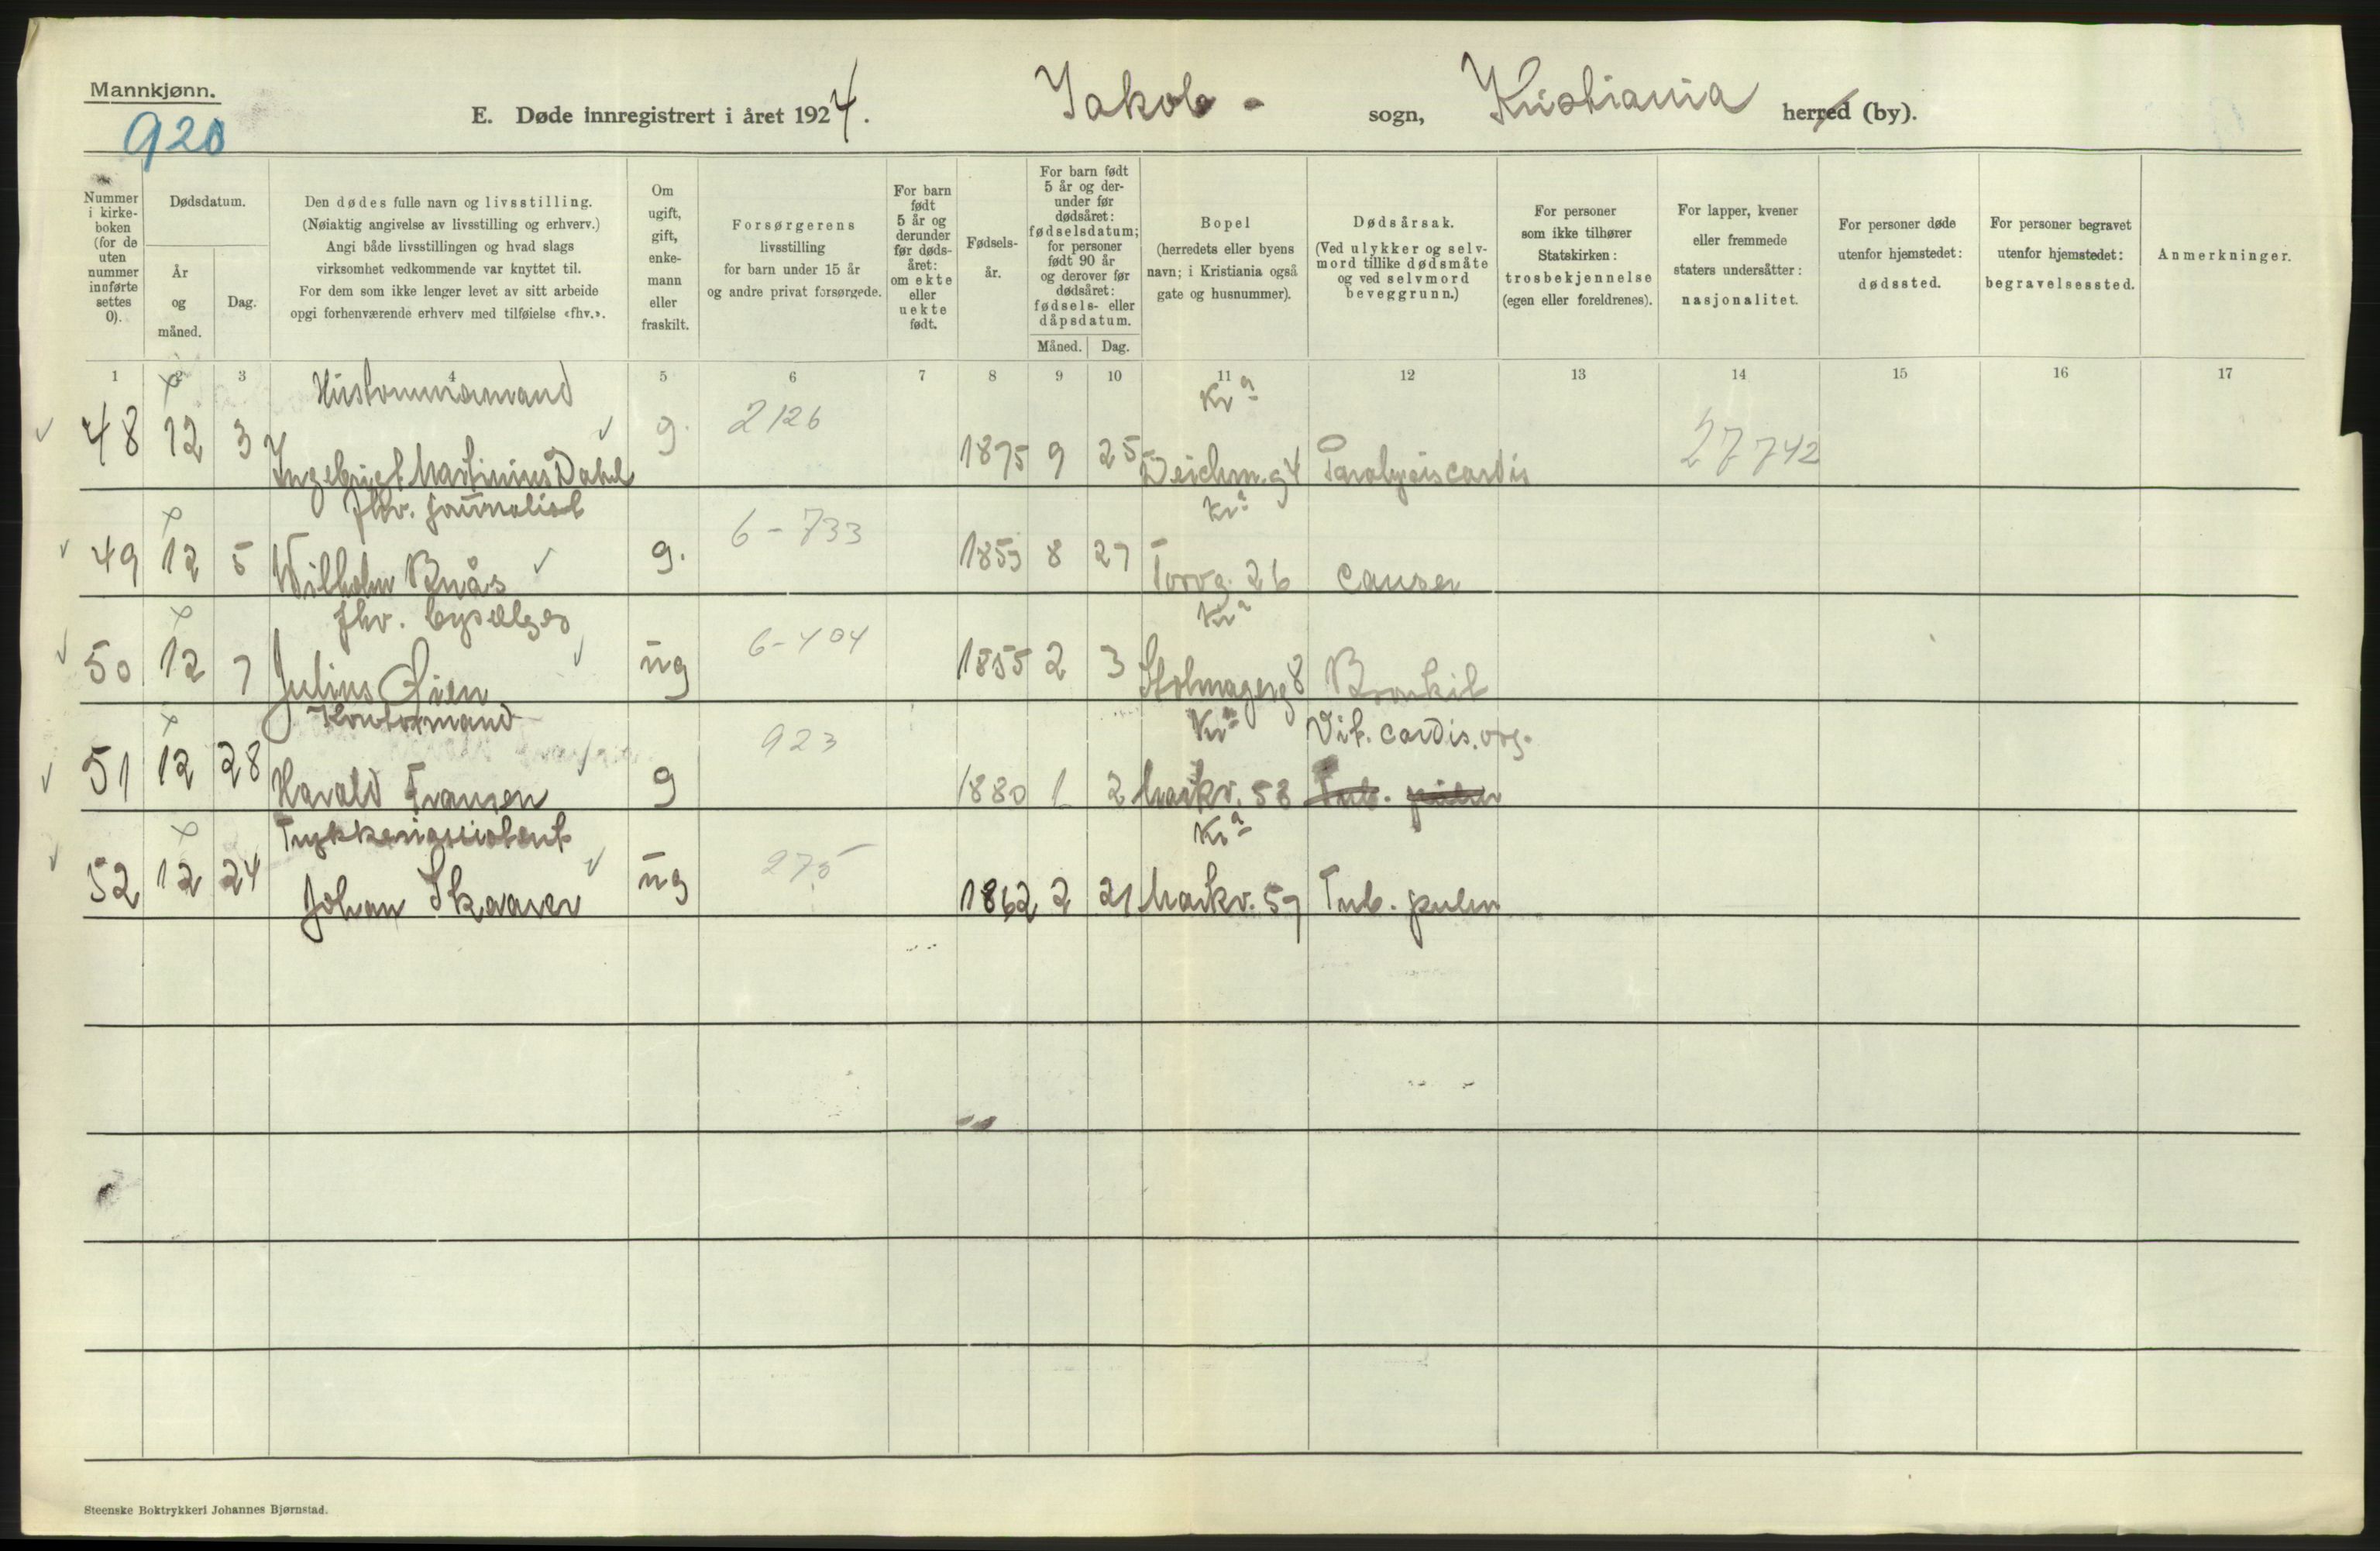 Mannkjønn.
920
E. Døde innregistrert i året 1924.
Jakob - sogn, Kristiania herred (by).
Nummer i kirke-boken (for de uten nummer innførte settes 0).
Dødsdatum.
År og måned.
Dag.
Den dødes fulle navn og livsstilling.
(Nøiaktig angivelse av livsstilling og erhverv.)
Angi både livsstillingen og hvad slags
virksomhet vedkommende var knyttet til.
For dem som ikke lenger levet av sitt arbeide
opgi forhenværende erhverv med tilføielse «fhv.».
Om ugift, gift, enke-mann eller fraskilt.
Forsørgerens
livsstilling
for barn under 15 år
og andre privat forsørgede.
For barn født 5 år og derunder før døds-året: om ekte eller uekte født.
Fødsels-år.
For barn født 5 år og der-under før dødsåret: fødselsdatum; for personer født 90 år og derover før dødsåret: fødsels- eller dåpsdatum.
Måned. Dag.
Bopel
(herredets eller byens
navn; i Kristiania også
gate og husnummer).
Dødsårsak.
(Ved ulykker og selv-
mord tillike dødsmåte
og ved selvmord
beveggrunn.)
For personer
som ikke tilhører
Statskirken:
trosbekjennelse
(egen eller foreldrenes).
For lapper, kvener
eller fremmede
staters undersåtter:
nasjonalitet.
For personer døde
utenfor hjemstedet:
dødssted.
For personer begravet
utenfor hjemstedet:
begravelsessted.
Anmerkninger.
1 2 3 4 5 6 7 8 9 10 11 12 13 14 15 16 17
Kra
48 12 3 Ingebrigt Martinius Dahl g. 2126 1875 9 25 Deichm.g 4 Paralysis cordis 27742
fhv. journalist Kra
49 12 5 Wilhelm Knås g. 6-733 8 27 Torvg. 26 Cancer
fhv. Kra
50 12 7 Julius Øien ug 6-404 1855 2 3 8 Bronkit
Kontormand Kra Vit. cordis. org.
51 12 28 Harald Fransen g 923 1880 1 2 Markv. 58 Tub. pulm
Trykkeriassistent Kra
52 12 24 Johan Skaarer ug 275 1862 2 21 Markv. 57 Tub. pulm
Steenske Boktrykkeri Johannes Bjørnstad.